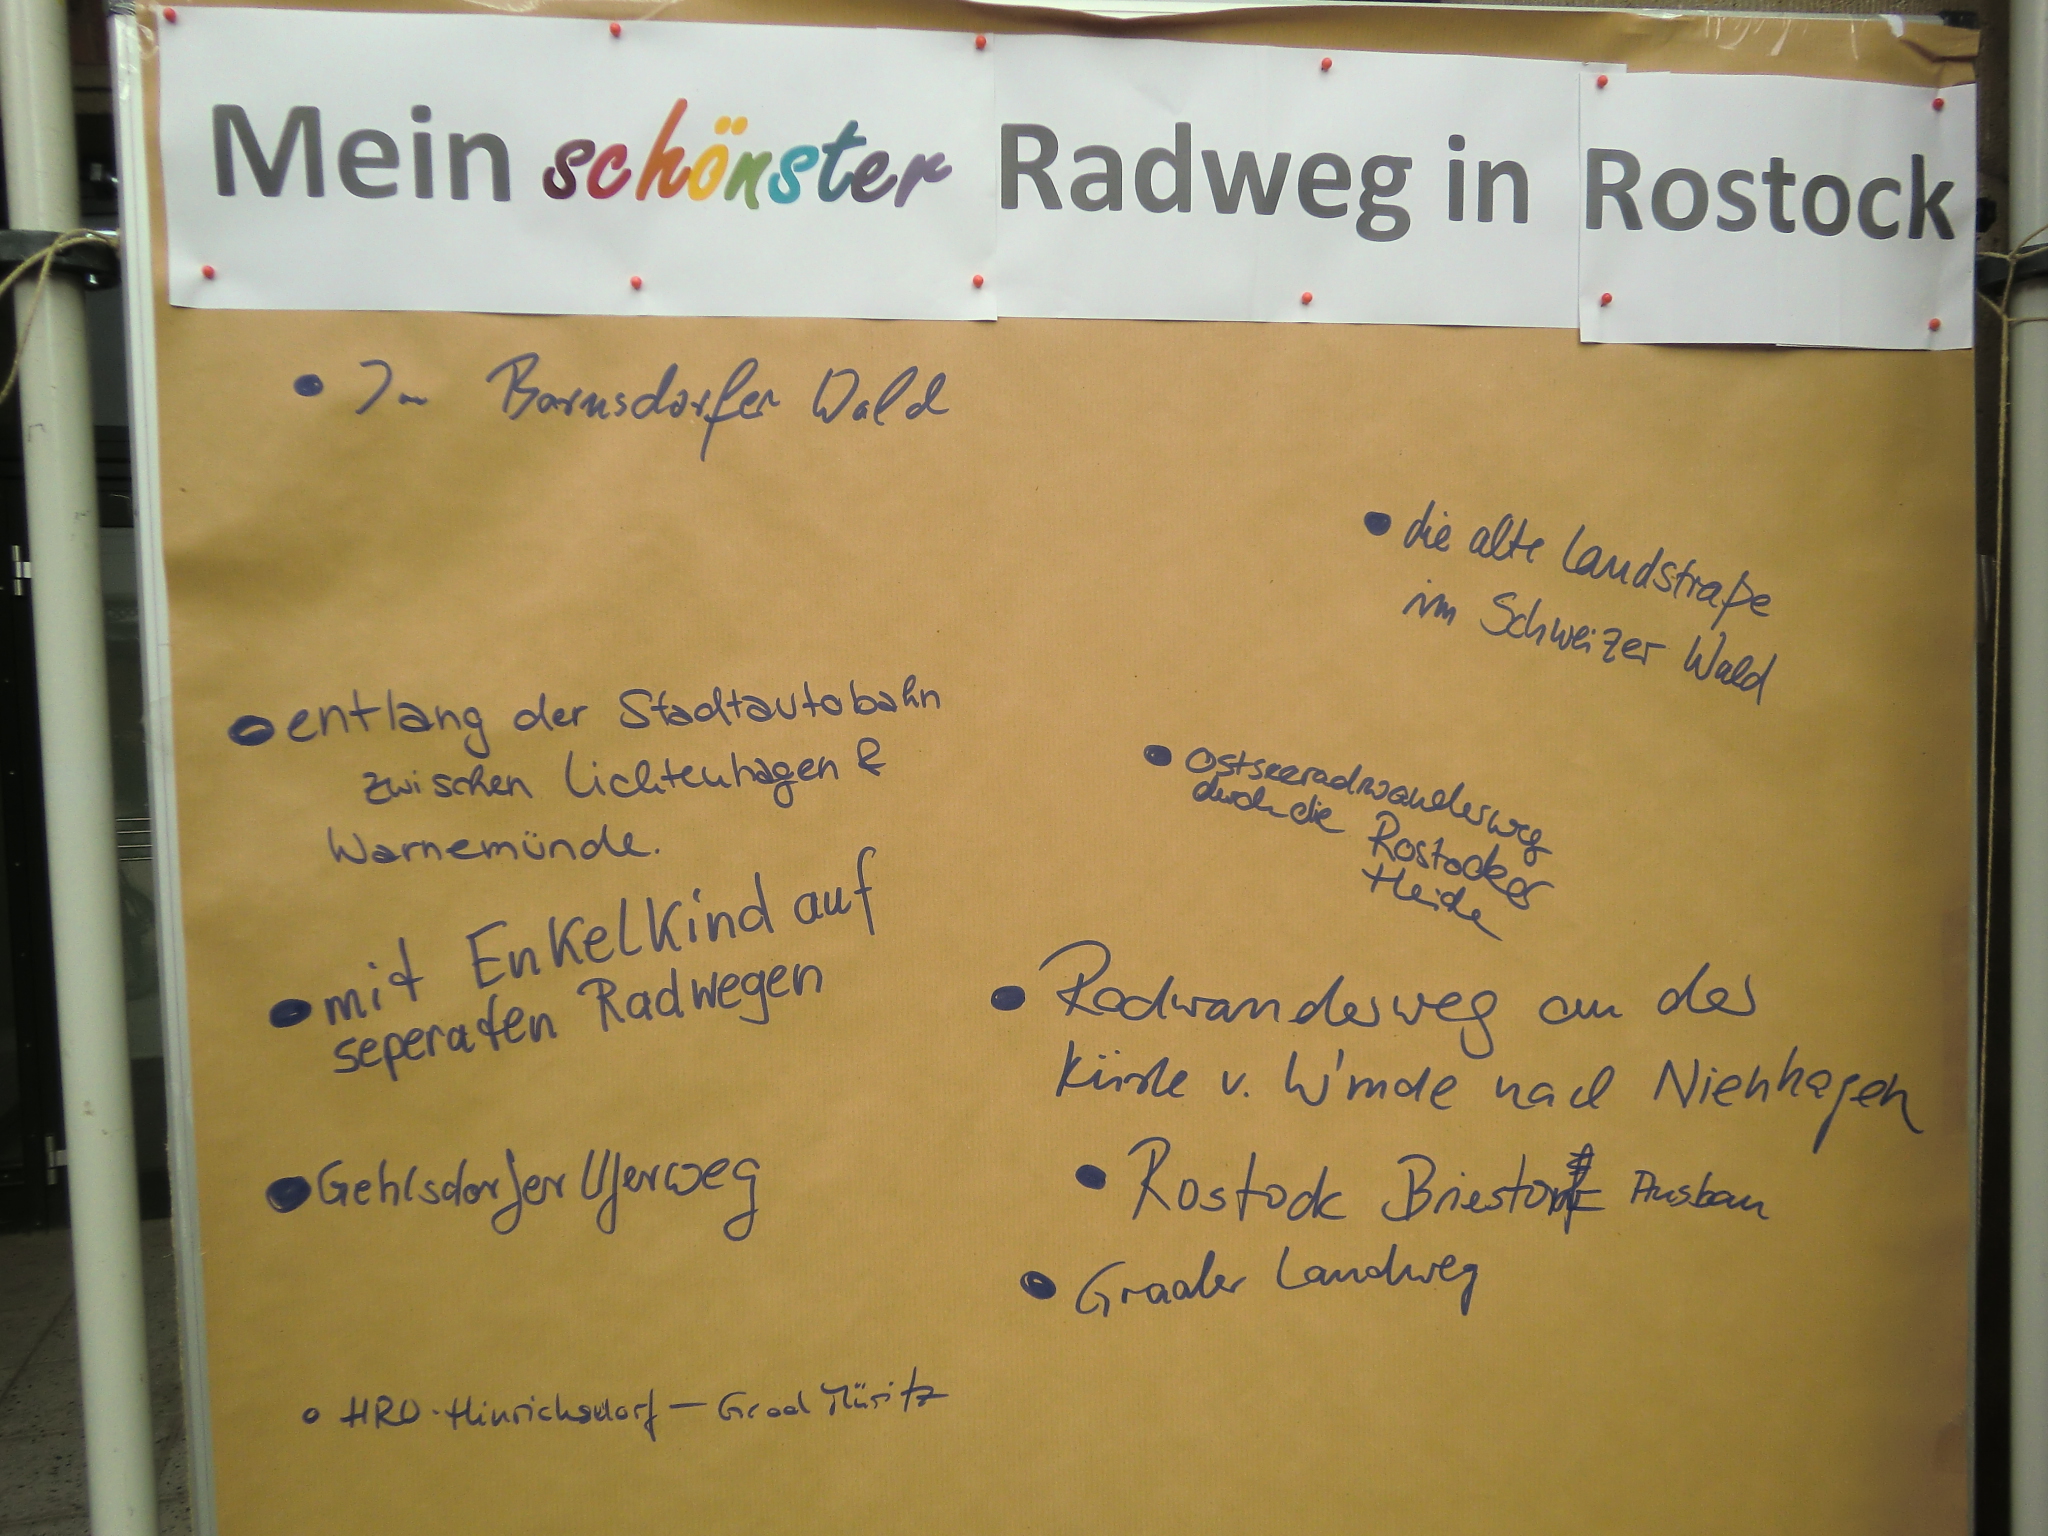 Mein schönster Radweg in Rostock
• Im Barnsdorfer Wald
• entlang der Stadtautobahn
zwischen Lichtenhagen &
Warnemünde.
• mit Enkelkind auf
seperaten Radwegen
• Gehlsdorfer Uferweg
• HRO-Hinrichsdorf – Graal Müritz
• die alte Landstraße
im Schweizer Wald
• Ostseeradwanderweg
durch die Rostocker
Heide
• Radwanderweg an der
Küste v. W'mde nach Nienhagen
• Rostock Briestorf Ausbau
• Graaler Landweg